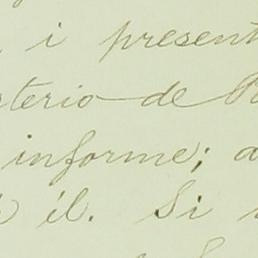 i present
sterio de
informe; a
él. Si